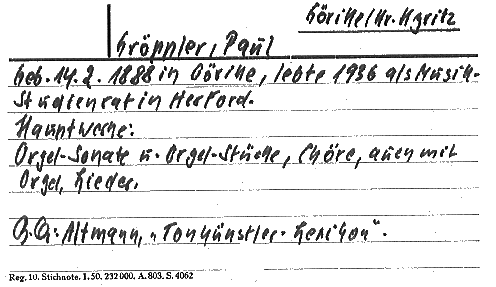 Görike/Kr. Kyritz
Gröppler, Paul
Geb. 14.2. 1888 in Görike, lebte 1936 als Musik-
Studienrat in Herford.
Hauptwerke:
Orgel-Sonate u. Orgel-Stücke, Chöre, auch mit
Orgel, Lieder.
Altmann, „Tonkünstler-Lexikon".
Reg. 10. Stichnote. 1. 50. 232000. A. 803. S. 4062